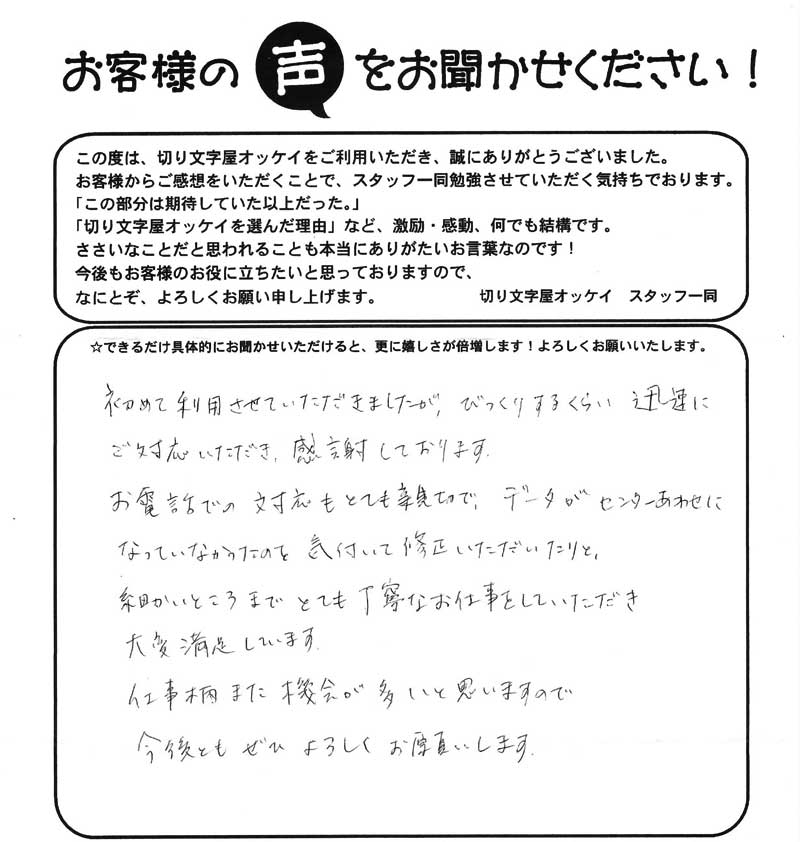 お客様の声をお聞かせください！
この度は、切り文字屋オッケイをご利用いただき、誠にありがとうございました。
お客様からご感想をいただくことで、スタッフ一同勉強させていただく気持ちでおります。
「この部分は期待していた以上だった。」
「切り文字屋オッケイを選んだ理由」など、激励・感動、何でも結構です。
ささいなことだと思われることも本当にありがたいお言葉なのです！
今後もお客様のお役に立ちたいと思っておりますので、
なにとぞ、よろしくお願い申し上げます。　切り文字屋オッケイ　スタッフ一同
☆できるだけ具体的にお聞かせいただけると、更に嬉しさが倍増します！よろしくお願いいたします。
初めて利用させていただきましたが、びっくりするくらい迅速に
ご対応いただき、感謝しております。
お電話での対応もとても親切で、データがセンターあわせに
なっていなかったのを気付いて修正いただいたりと、
細かいところまでとても丁寧なお仕事をしていただき
大変満足しています。
仕事柄また機会が多いと思いますので
今後ともぜひよろしくお願いします。